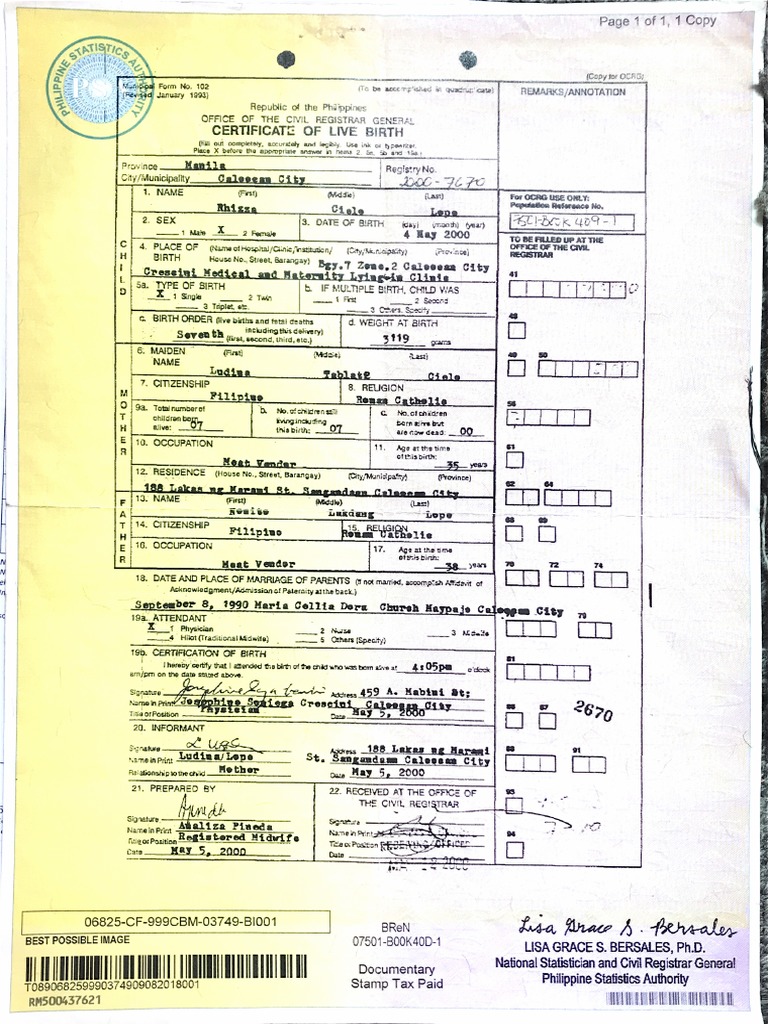 Page 1 of 1, 1 Copy
PHILIPPINE STATISTICS AUTHORITY
(Copy for OCRG)
Municipal Form No. 102 (To be accomplished in quadruplicate)
(Revised January 1993)
REMARKS/ANNOTATION
Republic of the Philippines
OFFICE OF THE CIVIL REGISTRAR GENERAL
CERTIFICATE OF LIVE BIRTH
(Fill out completely, accurately and legibly. Use ink or typewriter.
Place X before the appropriate answer in items 2, 5a, 5b and 19a.)
Province Manila
City/Municipality Caloocan City
Registry No.
2000-7670
CHILD
1. NAME (First) (Middle) (Last)
Rhizza Cielo Lope
2. SEX
1 Male X 2 Female
3. DATE OF BIRTH (day) (month) (year)
4 May 2000
4. PLACE OF BIRTH (Name of Hospital/Clinic/Institution/ (City/Municipality) (Province)
House No., Street, Barangay) Bgy.7 Zone.2 Caloocan City
Crescini Medical and Maternity Lying-in Clinic
5a. TYPE OF BIRTH
X 1 Single 2 Twin
3 Triplet, etc.
b. IF MULTIPLE BIRTH, CHILD WAS
1 First 2 Second
3 Others, Specify
c. BIRTH ORDER (live births and fetal deaths
including this delivery)
Seventh (first, second, third, etc.)
d. WEIGHT AT BIRTH
3119 grams
MOTHER
6. MAIDEN NAME (First) (Middle) (Last)
Ludina Cielo
7. CITIZENSHIP
Filipino
8. RELIGION
Roman Catholic
9a. Total number of
children born
alive: 07
b. No. of children still
living including
this birth: 07
c. No. of children
born alive but
are now dead: 00
10. OCCUPATION
Meat Vendor
11. Age at the time
of this birth:
35 years
12. RESIDENCE (House No., Street, Barangay) (City/Municipality) (Province)
188 Lakas ng Marami St. Sangandaan Caloocan City
FATHER
13. NAME (First) (Middle) (Last)
Lope
14. CITIZENSHIP
Filipino
15. RELIGION
Roman Catholic
16. OCCUPATION
Meat Vendor
17. Age at the time
of this birth:
38 years
18. DATE AND PLACE OF MARRIAGE OF PARENTS (If not married, accomplish Affidavit of
Acknowledgment/Admission of Paternity at the back.)
September 8, 1990 Maria Cellia Dora Church Maypajo Caloocan City
19a. ATTENDANT
X 1 Physician 2 Nurse 3 Midwife
4 Hilot (Traditional Midwife) 5 Others (Specify)
19b. CERTIFICATION OF BIRTH
I hereby certify that I attended the birth of the child who was born alive at 4:05pm o'clock
am/pm on the date stated above.
Signature Address 459 A. Mabini St;
Name in Print Josephine Crescini Caloocan City
Title or Position Physician Date May 5, 2000
20. INFORMANT
Signature Address 188 Lakas ng Marami
Name in Print Ludina/Lope St. Sangandaan Caloocan City
Relationship to the child Mother Date May 5, 2000
21. PREPARED BY
Signature
Name in Print Analiza Pineda
Title or Position Registered Midwife
Date May 5, 2000
22. RECEIVED AT THE OFFICE OF
THE CIVIL REGISTRAR
Signature
Name in Print
Title or Position
Date 2000
For OCRG USE ONLY:
Population Reference No.
TO BE FILLED UP AT THE
OFFICE OF THE CIVIL
REGISTRAR
41
48
49 50
56
61
62 64
68 69
70 72 74
79
81
86 87 2670
88 91
93
94
06825-CF-999CBM-03749-BI001
BEST POSSIBLE IMAGE
T08906825999037490908201 8001
RM500437621
BReN
07501-B00K40D-1
Documentary
Stamp Tax Paid
Lisa Grace S. Bersales
LISA GRACE S. BERSALES, Ph.D.
National Statistician and Civil Registrar General
Philippine Statistics Authority